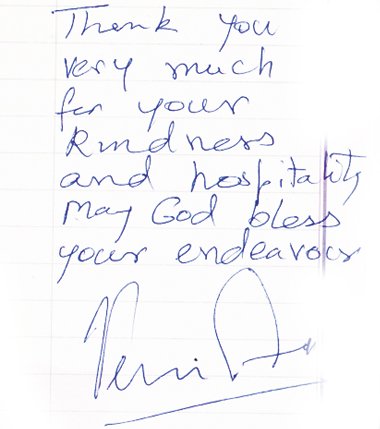 Thank you
very much
for your
kindness
and hospitality
May God bless
your endeavour